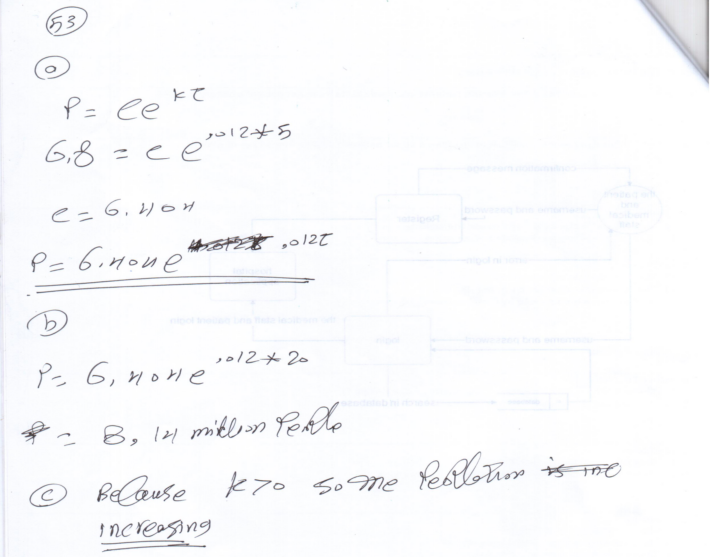 53
a
P = Ce^kt
6,8 = C e^,012*5
C = 6.404
P = 6.404 e^,012t
b
P = 6,404 e^,012*20
= 8,14 million People
c Because k>0 so the Population
increasing